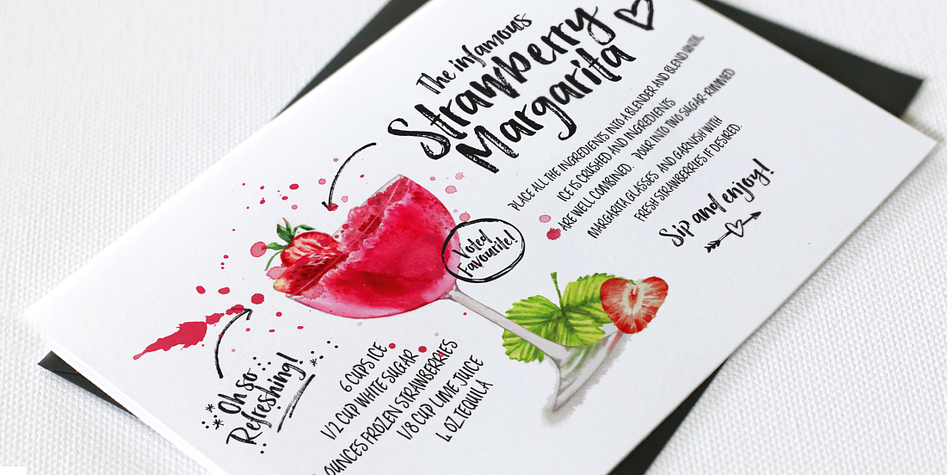 The infamous
Strawberry
Margarita
PLACE ALL THE INGREDIENTS INTO A BLENDER AND BLEND UNTIL
ICE IS CRUSHED AND INGREDIENTS
ARE WELL COMBINED. POUR INTO TWO SUGAR-RIMMED
MARGARITA GLASSES AND GARNISH WITH
FRESH STRAWBERRIES IF DESIRED.
Sip and enjoy!
Voted
Favourite!
Oh so
Refreshing!
6 CUPS ICE
1/2 CUP WHITE SUGAR
OUNCES FROZEN STRAWBERRIES
1/8 CUP LIME JUICE
4 OZ TEQUILA